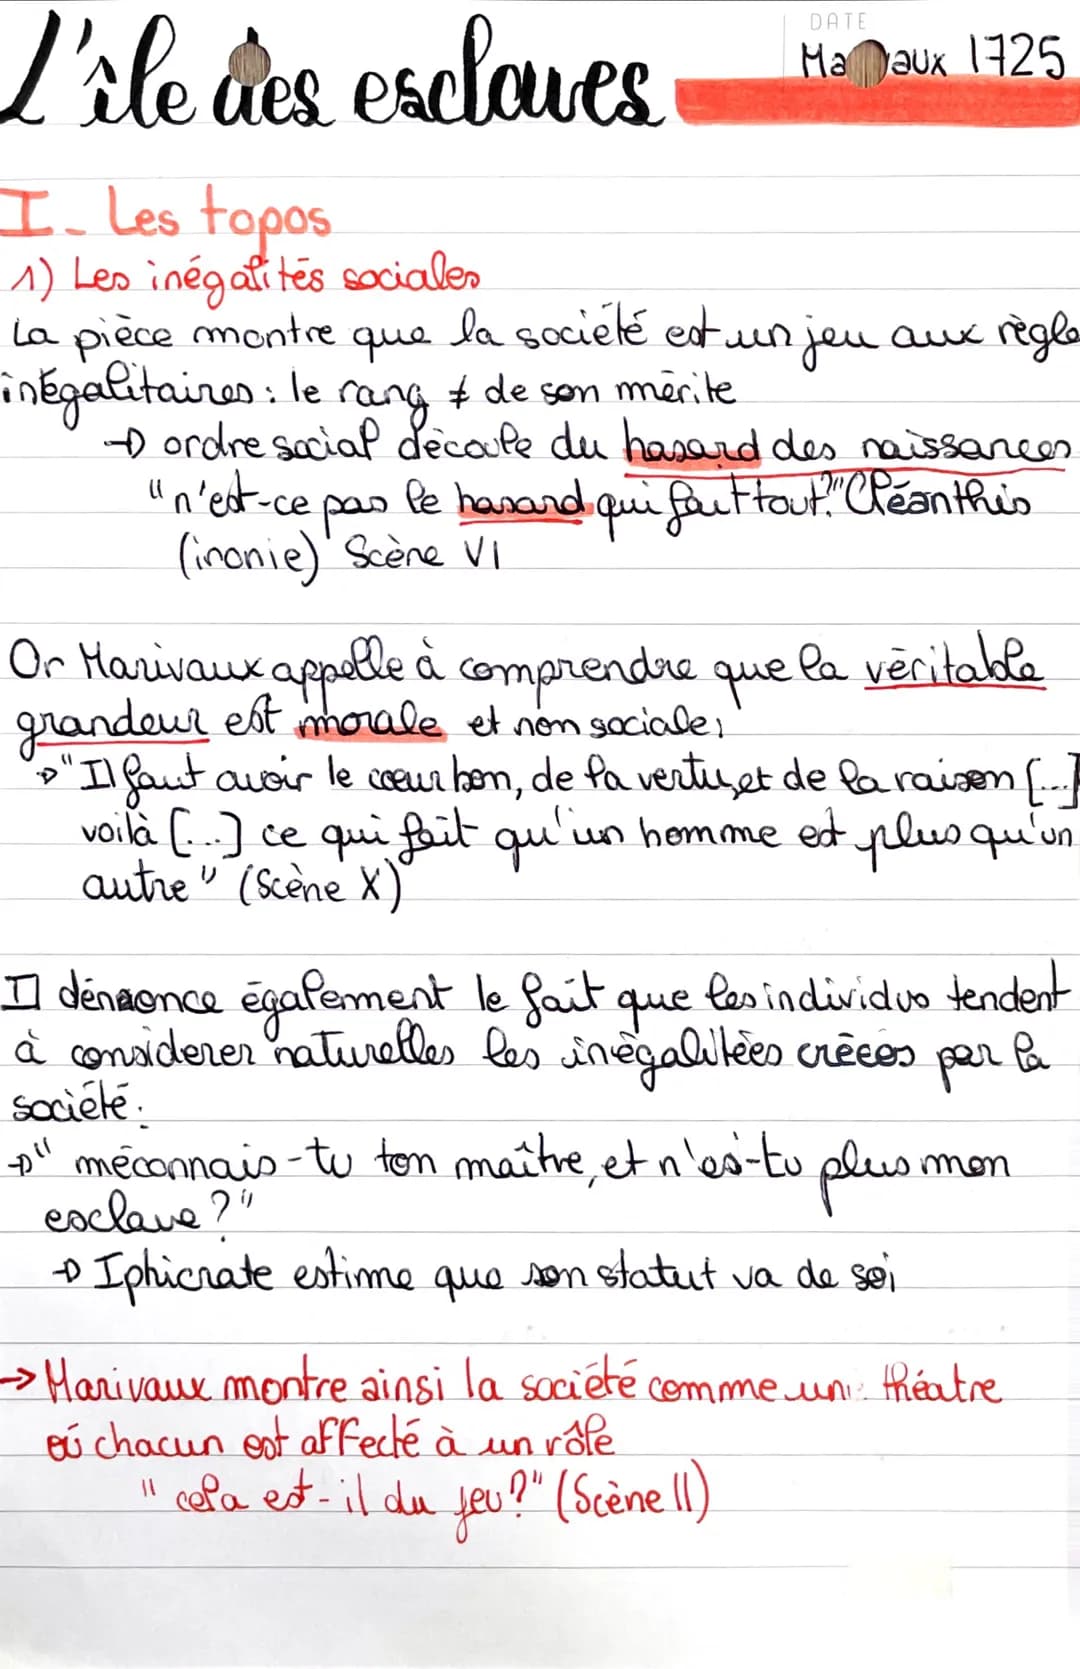 L'île des esclaves
DATE
Ma aux 1725
I - Les topos
1) Les inégalités sociales
La pièce montre que la société est un jeu aux règle
inégalitaires : le rang ≠ de son mérite
→ ordre social découle du hasard des naissances
"n'est-ce pas le hasard qui fait tout?" Cléanthis
(ironie) Scène VI
Or Marivaux appelle à comprendre que la véritable
grandeur est morale et non sociale;
→ "Il faut avoir le cœur bon, de la vertu, et de la raison [...]
voilà [...] ce qui fait qu'un homme est plus qu'un
autre" (Scène X)
Il dénonce également le fait que les individus tendent
à considerer naturelles les inégalitées créées par la
société.
→ "méconnais-tu ton maître, et n'es-tu plus mon
esclave?"
→ Iphicrate estime que son statut va de soi
→ Marivaux montre ainsi la société comme un théatre
où chacun est affecté à un rôle
"cela est-il du jeu?" (Scène II)